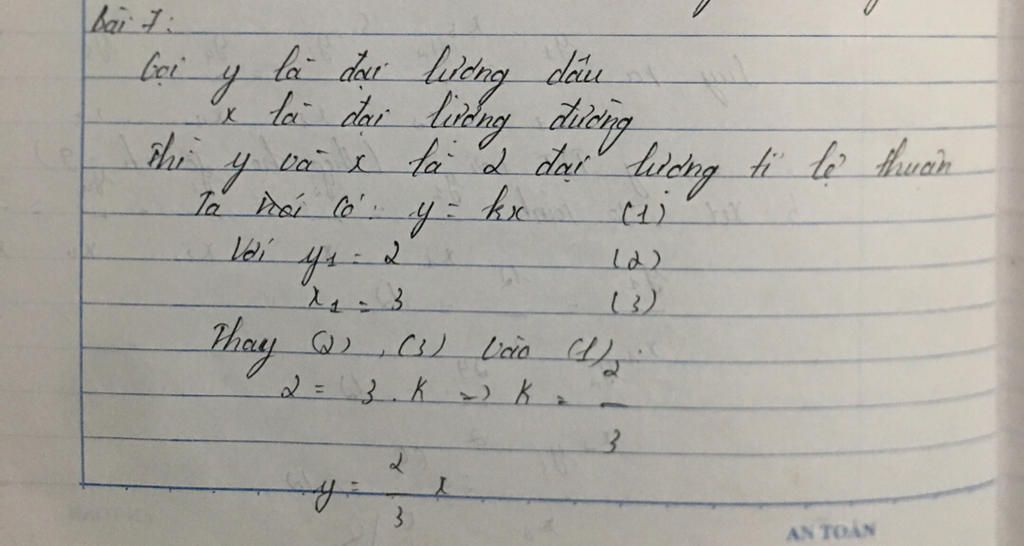 Bài 7:
Gọi y là đại lượng dâu
x là đại lượng đường
Thì y và x là 2 đại lượng tỉ lệ thuận
Ta có: y = kx (1)
Với y₁ = 2 (2)
x₁ = 3 (3)
Thay (2), (3) vào (1).
2 = 3 . k => k = 2/3
y = 2/3 x
AN TOÀN